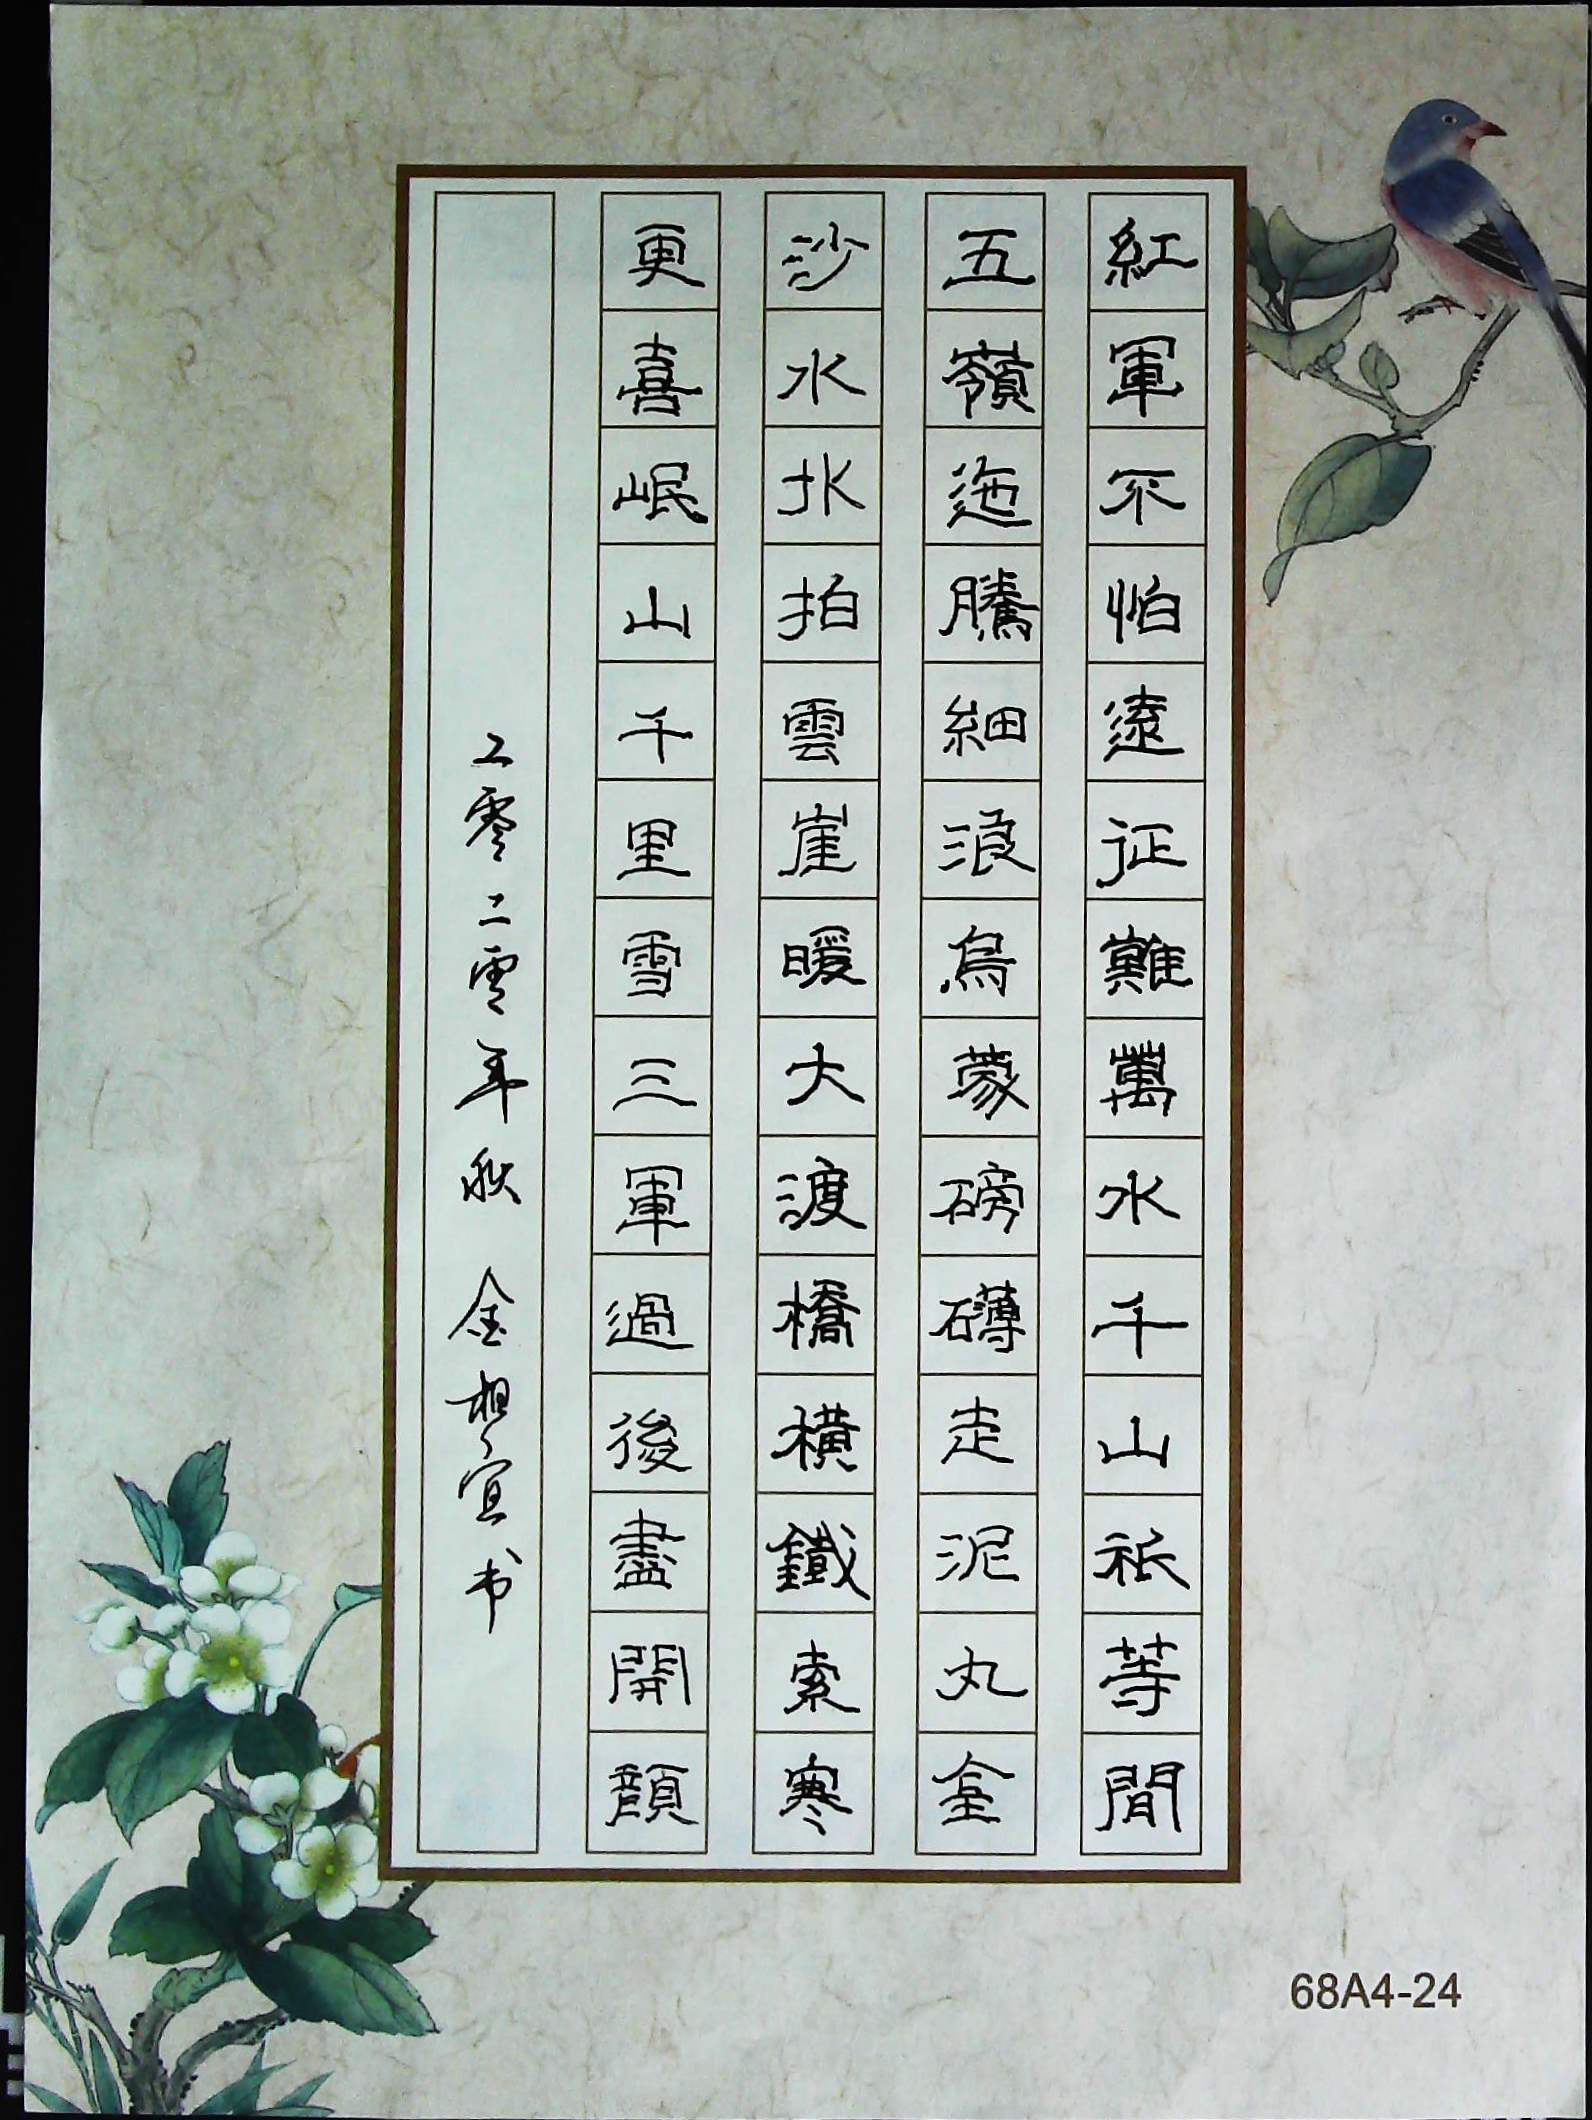 紅軍不怕遠征難萬水千山祇等閒
五嶺迤騰細浪烏蒙磅礴走泥丸金
沙水水拍雲崖暖大渡橋橫鐵索寒
更喜岷山千里雪三軍過後盡開顏
二零二零年秋 金相宜书
68A4-24